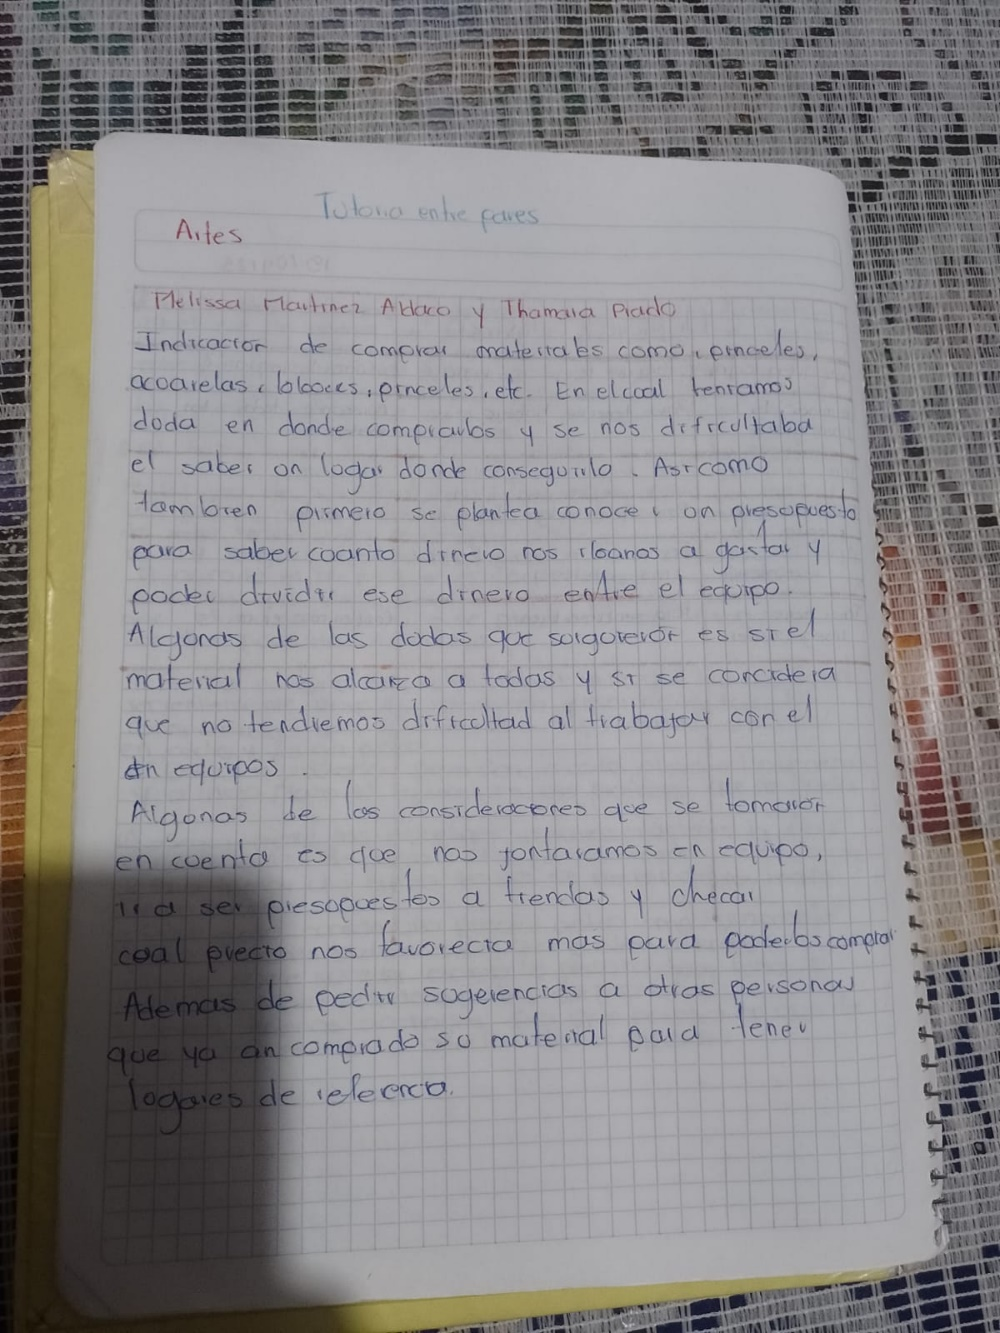 Tutoria entre pares
Artes
Melissa Martinez Aldaco y Thamara Prado
Indicacion de comprar materiales como, pinceles,
acoarelas, bloces, pinceles, etc. En el coal teniamos
doda en donde comprarlos y se nos dificultaba
el saber on logar donde conseguirlo. Asi como
tambien primero se plantea conocer on presopuesto
para saber coanto dinero nos ibanos a gastar y
poder dividir ese dinero entre el equipo.
Algonas de las dodas que sorgieron es si el
material nos alcanza a todas y si se concidera
que no tendremos dificoltad al trabajar con el
en equipos.
Algonas de las consideraciones que se tomaron
en coenta es que nos jontaramos en equipo,
ir a ser presopuestos a tiendas y checar
coal precio nos favorecia mas para poderlos comprar
Ademas de pedir sogerencias a otras personas
que ya an comprado so material para tener
logares de referencia.